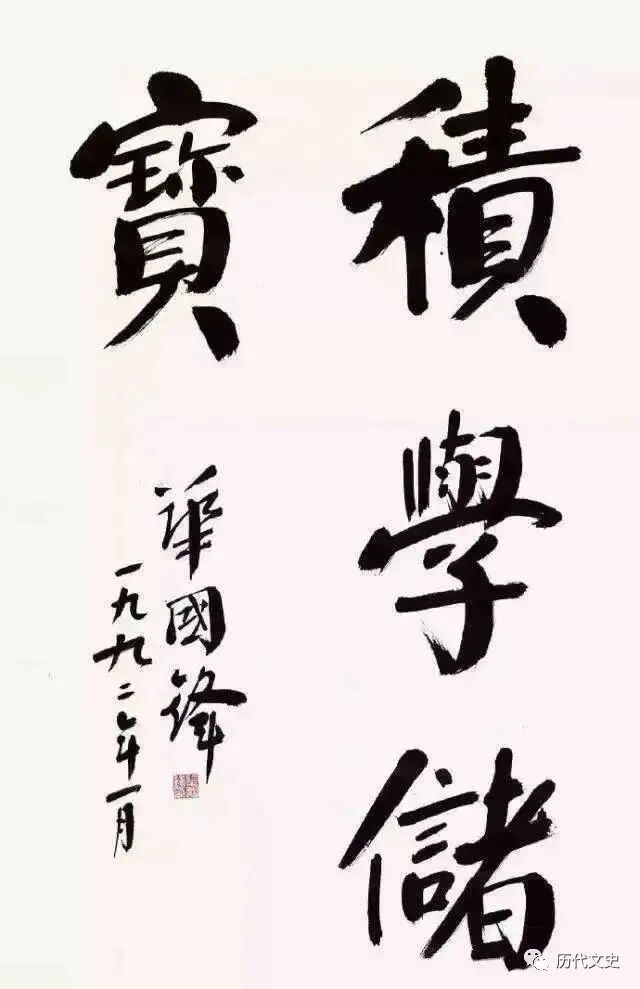 積學儲
寶
華國鋒
一九九二年一月
历代文史